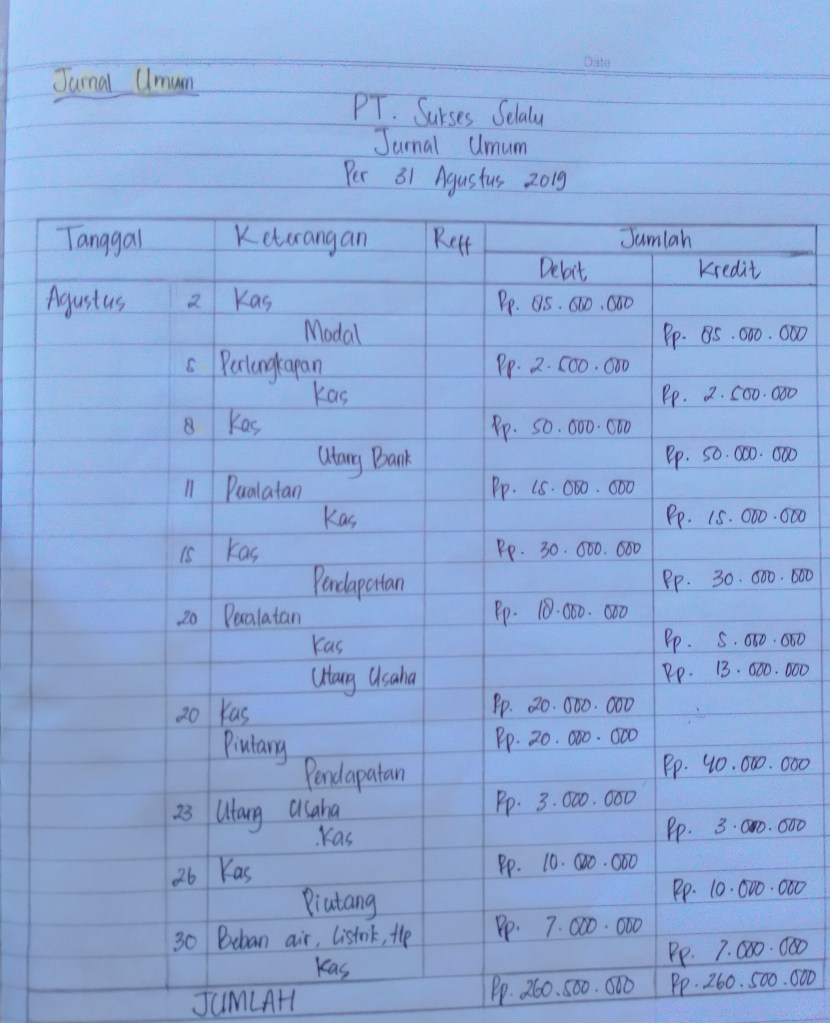 Date
Jurnal Umum
PT. Sukses Selalu
Jurnal Umum
Per 31 Agustus 2019
Tanggal Keterangan Reff Jumlah
Debit Kredit
Agustus 2 Kas Rp. 85.000.000
Modal Rp. 85.000.000
5 Perlengkapan Rp. 2.500.000
Kas Rp. 2.500.000
8 Kas Rp. 50.000.000
Utang Bank Rp. 50.000.000
11 Peralatan Rp. 15.000.000
Kas Rp. 15.000.000
15 Kas Rp. 30.000.000
Pendapatan Rp. 30.000.000
20 Peralatan Rp. 18.000.000
Kas Rp. 5.000.000
Utang Usaha Rp. 13.000.000
20 Kas Rp. 20.000.000
Piutang Rp. 20.000.000
Pendapatan Rp. 40.000.000
23 Utang Usaha Rp. 3.000.000
Kas Rp. 3.000.000
26 Kas Rp. 10.000.000
Piutang Rp. 10.000.000
30 Beban air, listrik, tlp Rp. 7.000.000
Kas Rp. 7.000.000
JUMLAH Rp. 260.500.000 Rp. 260.500.000